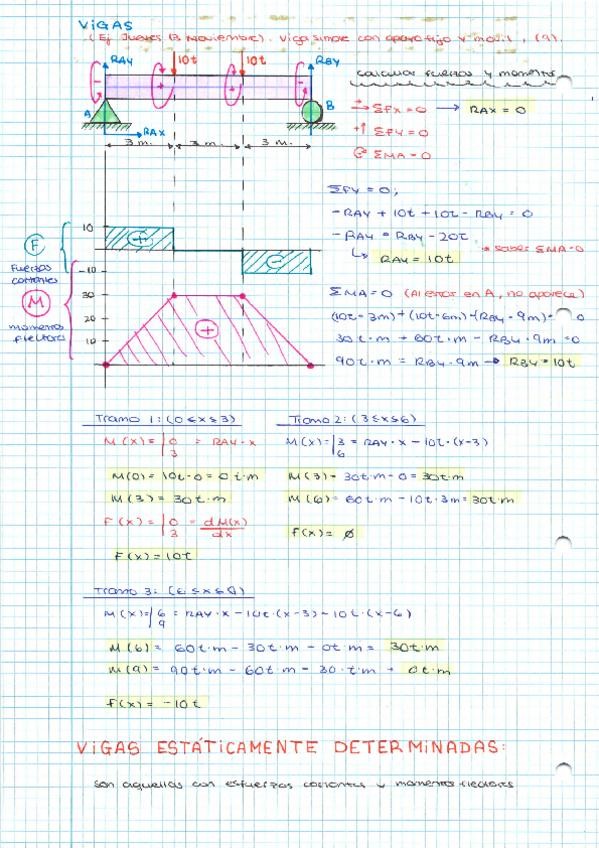 VIGAS
(Ej Jueves 13 Noviembre). Viga simple con apoyo fijo y movil, (9).
RAY 10t 10t RBY
A B
RAX
3 m. 3 m. 3 m.
calcular fuerzas y momentos
ΣFX = 0 → RAX = 0
ΣFY = 0
ΣMA = 0
ΣFY = 0;
- RAY + 10t + 10t - RBY = 0
- RAY = RBY - 20t
↳ RAY = 10t
* saber ΣMA=0
ΣMA = 0 (Al estar en A, no aparece)
(10t · 3m) + (10t · 6m) - (RBY · 9m) = 0
30t·m + 60t·m - RBY · 9m = 0
90t·m = RBY · 9m → RBY = 10t
F
fuerzas
cortantes
10
-10
+
-
M
momentos
flectores
30
20
10
+
Tramo 1: (0≤x≤3)
M(x) = |0 3 = RAY · x
M(0) = 10t · 0 = 0 t·m
M(3) = 30t·m
F(x) = |0 3 = dM(x)/dx
F(x) = 10t
Tramo 2: (3≤x≤6)
M(x) = |3 6 = RAY · x - 10t · (x-3)
M(3) = 30t·m - 0 = 30t·m
M(6) = 60t·m - 10t · 3m = 30t·m
f(x) = Ø
Tramo 3: (6≤x≤9)
M(x) = |6 9 = RAY · x - 10t · (x-3) - 10t · (x-6)
M(6) = 60t·m - 30t·m - 0t·m = 30t·m
M(9) = 90t·m - 60t·m - 30·t·m = 0t·m
f(x) = -10t
VIGAS ESTÁTICAMENTE DETERMINADAS:
son aquellas con esfuerzos cortantes y momentos flectores